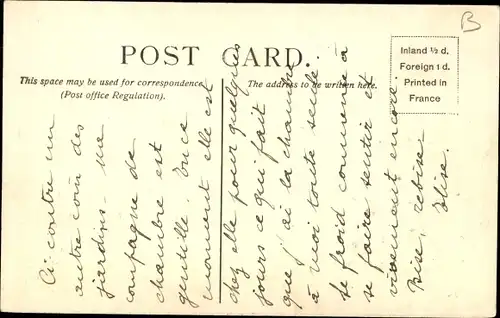 B
POST CARD.
This space may be used for correspondence
(Post office Regulation).
The address to be written here.
Inland ½ d.
Foreign 1 d.
Printed in
France
Ci contre un
autre coin des
jardins - ma
compagne de
chambre est
gentille. Pour ce
moment elle est
chez elle pour quelques
jours ce qui fait
que j'ai la chambre
à moi toute seule
le froid commence à
se faire sentir et
vivement encore.
Bise, rebise
Elise.